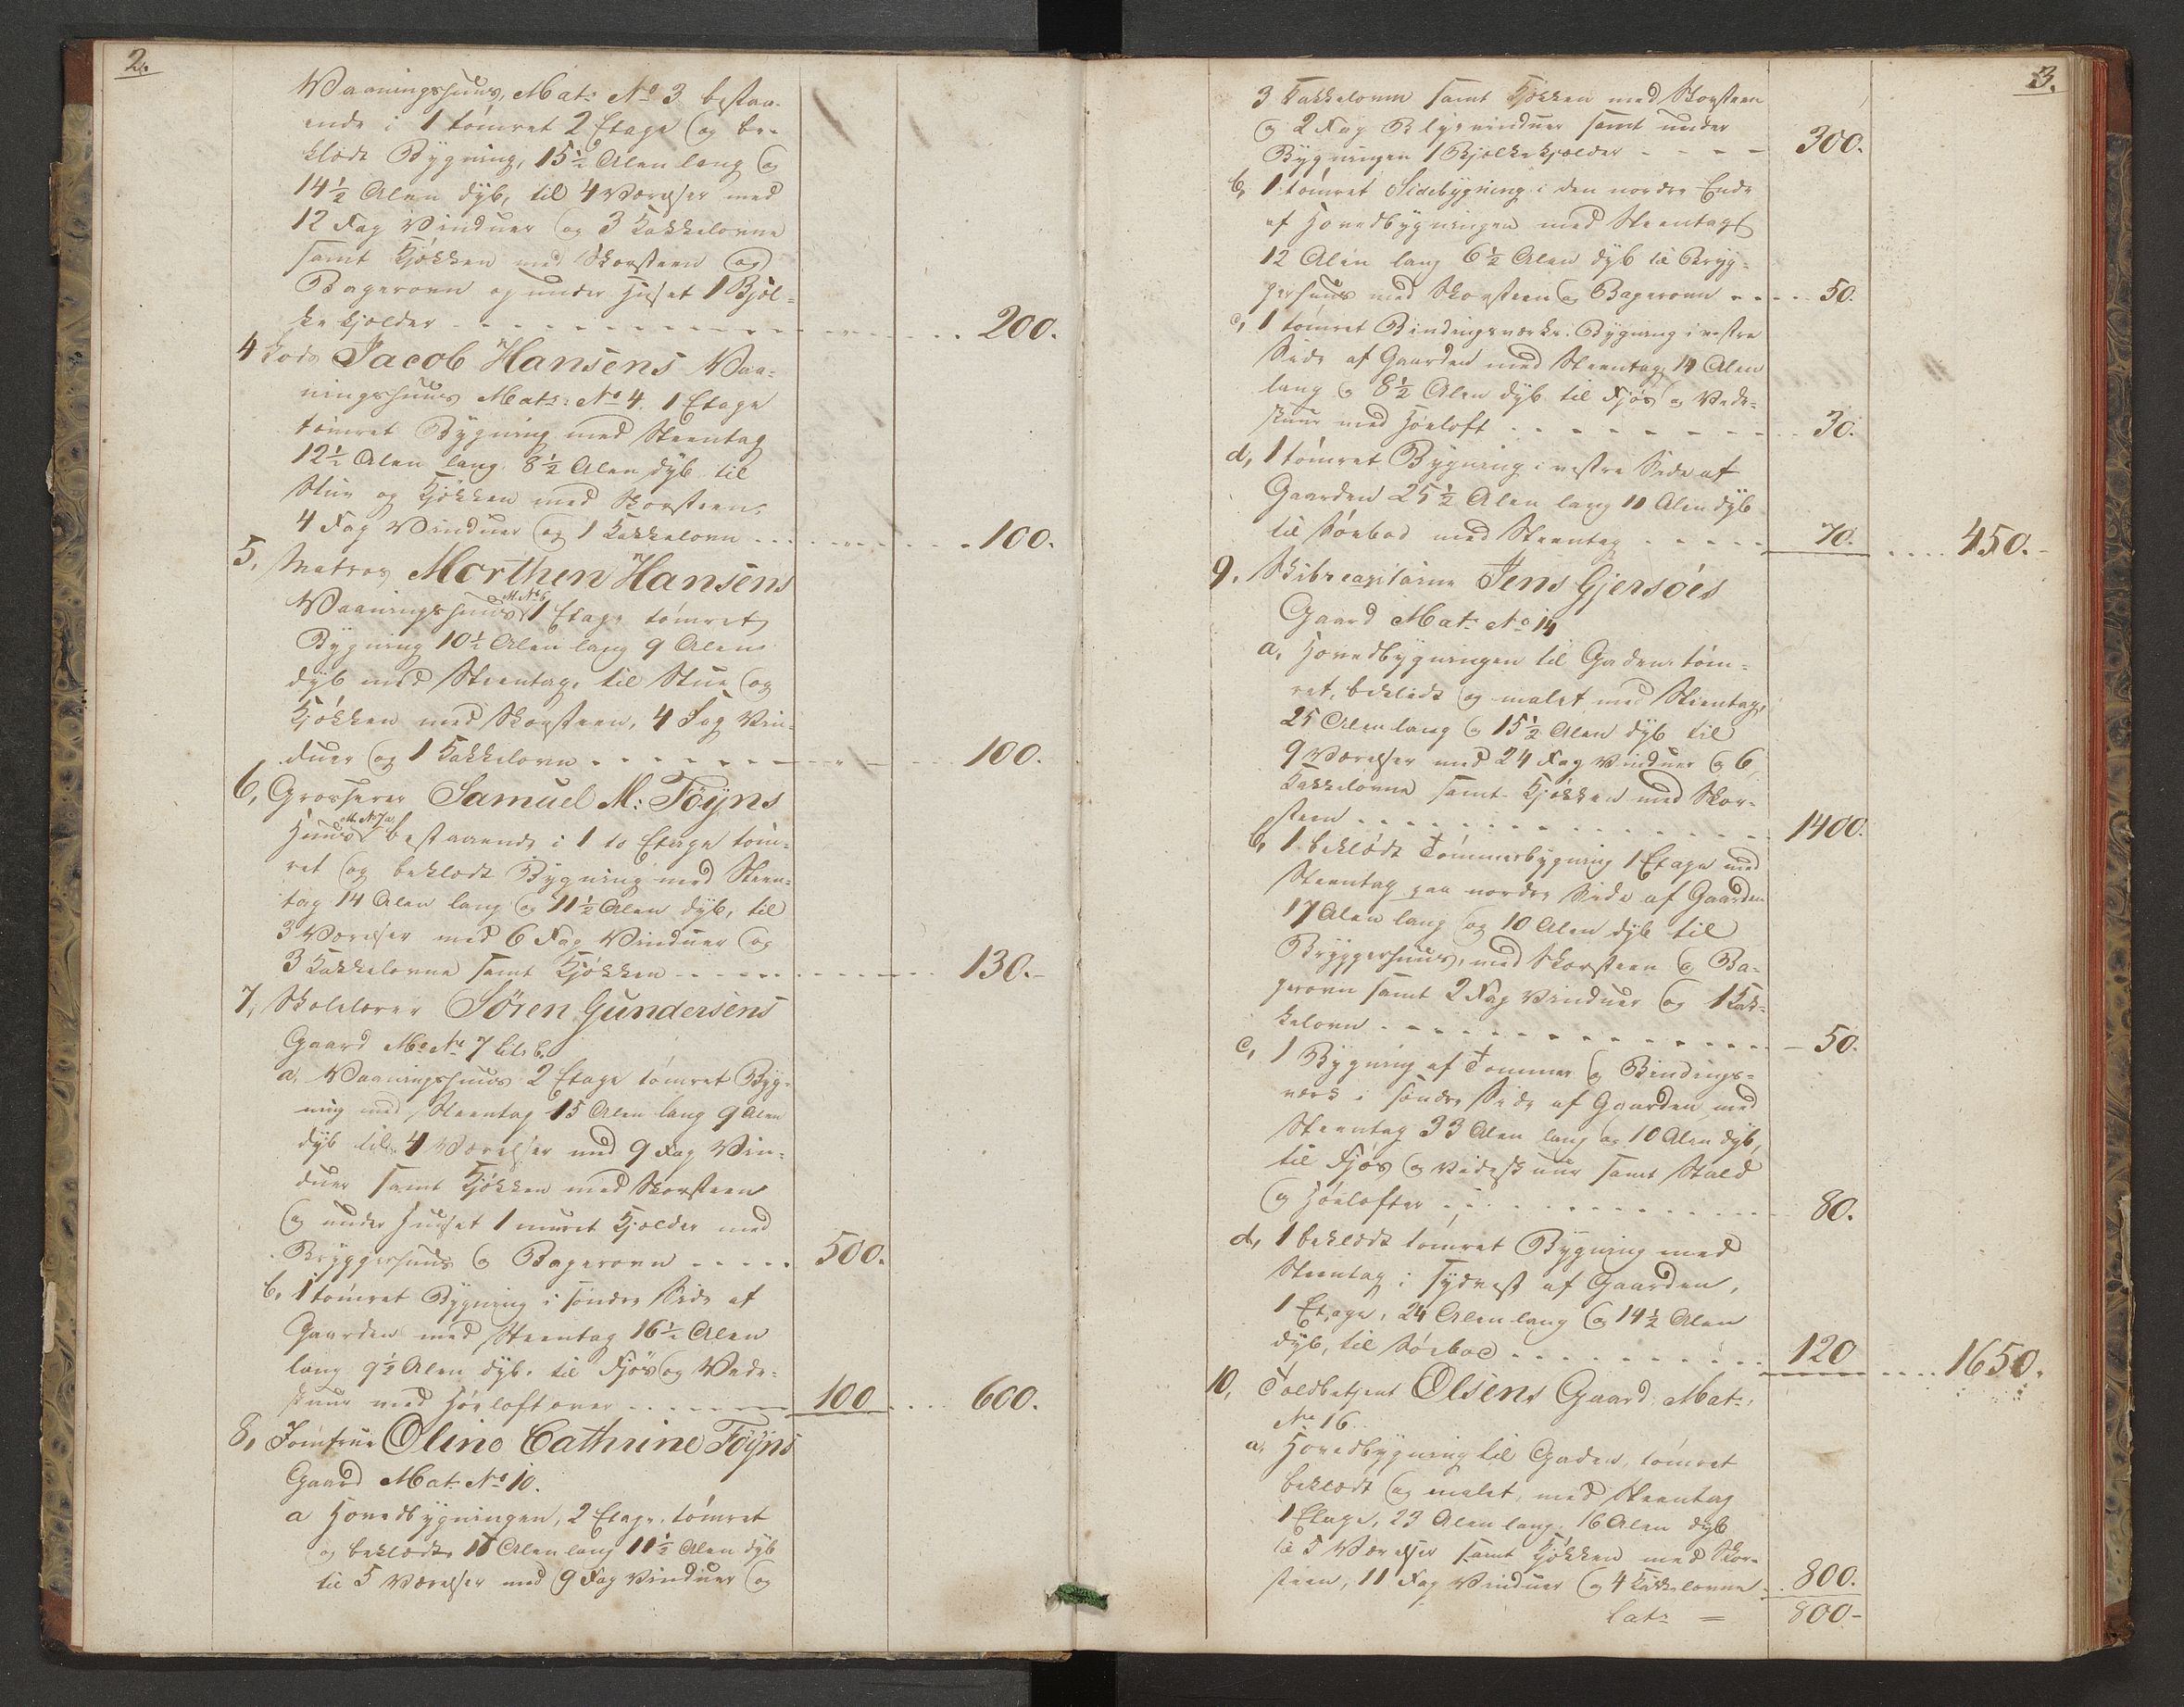 2.
Vaaningshuus, Mat: No 3 bestaa-
ende i 1 tömret 2 Etage og be-
klædt Bygning, 15½ Alen lang og
14½ Alen dyb, til 4 Værelser med
12 Fag Vinduer og 3 Kakkelovne
samt Kjökken med Skorsteen og
Bagerovn og under Huset 1 Bjel-
kekjelder 200.
4 Lods Jacob Hansens Vaa-
ningshuus Matr: No 4. 1 Etage
tömret Bygning med Steentag
12½ Alen lang 8½ Alen dyb til
Stue og Kjökken med Skorsteen,
4 Fag Vinduer og 1 Kakkelovn 100.
5, Matros Morthen Hansens
Vaaningshuus M. No 6 1 Etage tömret
Bygning 10½ Alen lang 9 Alen
dyb med Steentag, til Stue og
Kjökken med Skorsteen, 4 Fag Vin-
duer og 1 Kakkelovn 100.
6, Grosserer Samuel M: Föyns
Huus M. No 7 a, bestaaende i 1 to Etage töm-
ret og beklædt Bygning med Steen-
tag 14 Alen lang og 11½ Alen dyb, til
3 Værelser med 6 Fag Vinduer og
3 Kakkelovne samt Kjökken 130.-
7, Skolelærer Sören Gundersens
Gaard M: No 7 Litr b.
a, Vaaningshuus 2 Etage tömret Byg-
ning med Steentag 15 Alen lang 9 Alen
dyb til 4 Værelser med 9 Fag Vin-
duer samt Kjökken med Skorsteen
og under Huuset 1 muret Kjelder med
Bryggerhuus og Bagerovn 500.
b, 1 tömret Bygning i söndre Side af
Gaarden med Steentag 16½ Alen
lang 9½ Alen dyb, til Fjös og Vede-
skuur med Höeloft over 100 600.
8, Jomfrue Oline Cathrine Föyns
Gaard Mat: No 10.
a Hovedbygningen, 2 Etage, tömret
og beklædt, 18 Alen lang 11½ Alen dyb
til 5 Værelser med 9 Fag Vinduer og
3.
3 Kakkelovne samt Kjökken med Skorsteen
og 2 Fag Blyevinduer samt under
Bygningen 1 Bjelkekjelder 300.
b, 1 tömret Sidebygning i den nordre Ende
af Hovedbygningen med Steentag
12 Alen lang 6½ Alen dyb til Bryg-
gerhuus med Skorsteen og Bagerovn 50.
c, 1 tömret Bindingsverks Bygning i vestre
Side af Gaarden med Steentag, 14 Alen
lang og 8½ Alen dyb til Fjös og Vede-
skuur med Höeloft 30.
d, 1 tömret Bygning i vestre Side af
Gaarden 25½ Alen lang 11 Alen dyb
til Söebod med Steentag 70. 450.-
9. Skibscapitaine Jens Gjersöes
Gaard Mat: No 14
a, Hovedbygningen til Gaden, töm-
ret, beklædt og malet med Steentag,
25 Alen lang og 15½ Alen dyb til
9 Værelser med 24 Fag Vinduer og 6
Kakkelovne samt Kjökken med Skor-
steen 1400.
b, 1 beklædt Tömmerbygning 1 Etage med
Steentag paa nordre Side af Gaarden
17 Alen lang og 10 Alen dyb til
Bryggerhuus, med Skorsteen og Ba-
gerovn samt 2 Fag Vinduer og 1 Kak-
kelovn 50.
c, 1 Bygning af Tömmer og Bindings-
verk i söndre Side af Gaarden med
Steentag 33 Alen lang og 10 Alen dyb,
til Fjös og Vedeskuur samt Stald
og Höelofter 80.
d, 1 beklædt tömret Bygning med
Steentag i Sydvest af Gaarden,
1 Etage, 24 Alen lang og 14½ Alen
dyb, til Söebod 120 1650.
10, Toldbetjent Olsens Gaard, Mat:
No 16.
a, Hovedbygning til Gaden, tömret
beklædt og malet, med Steentag
1 Etage, 23 Alen lang, 16 Alen dyb
til 5 Værelser samt Kjökken med Skor-
steen, 11 Fag Vinduer og 4 Kakkelovne 800.
Lat: = 800-